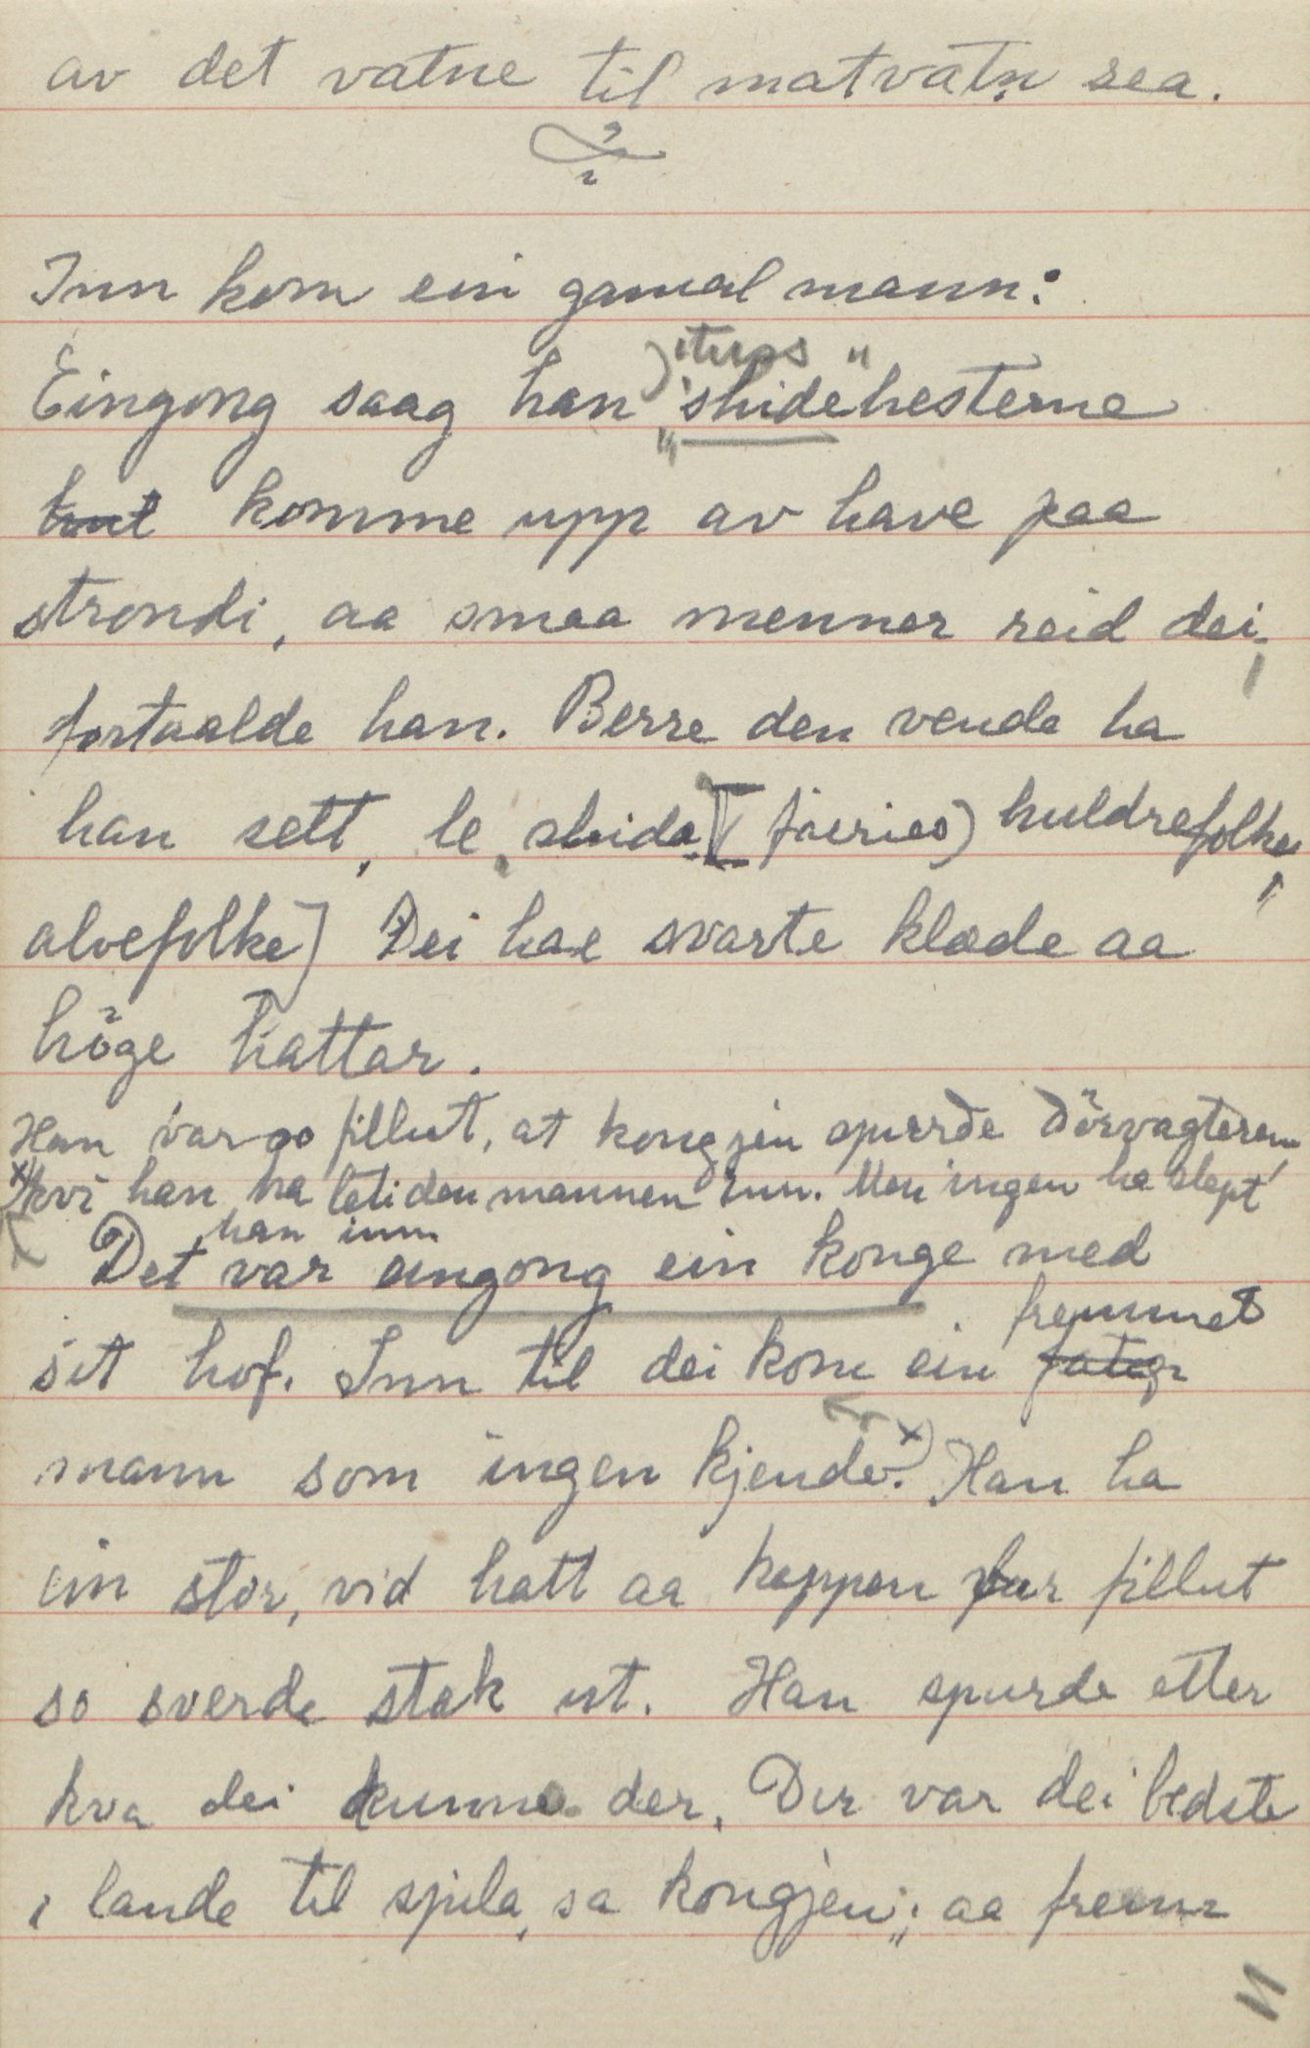 av det vatne til matvatn sea.
Inn kom ein gamal mann:
Eingong saag han "shidehesterne
komme upp av have paa
strondi, aa smaa menner reid dei,
fortaalde han. Berre den vende ha
han sett, le shida [(faeries) huldrefolke,
alvefolke] Dei hae svarte klæde aa
höge hattar.
Han var so fillut, at kongjen spurde dörvagteren
x) kvi han ha leti den mannen inn. Men ingen ha slept
han inn
Det var eingong ein konge med
sit hof. Inn til dei kom ein fremmed
mann som ingen kjende. x) Han ha
ein stor, vid hatt aa kappen var fillut
so sverde stak ut. Han spurde etter
kva dei kunne der. Der var dei bedste
i lande til spila, sa kongjen; aa frem